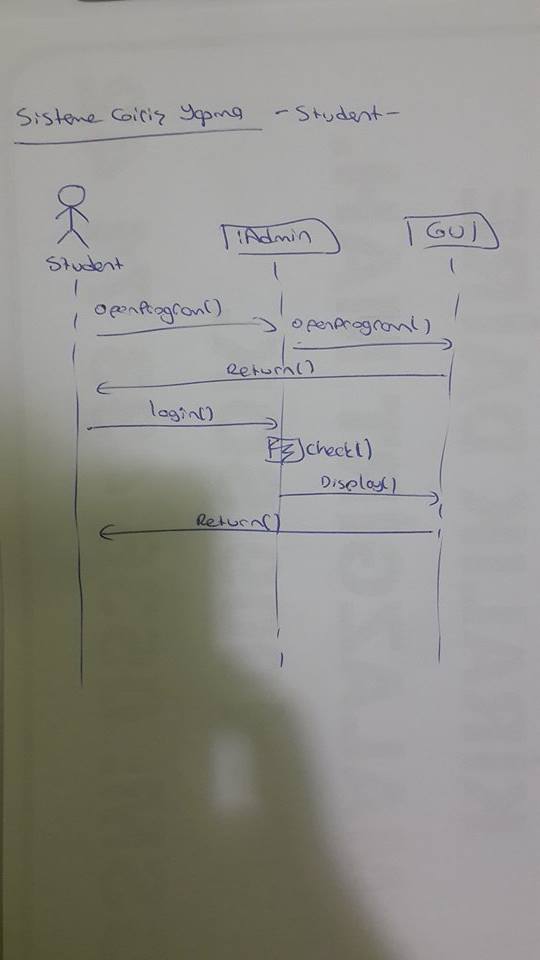 Sisteme Giriş Yapma - Student -
Student
:Admin
GUI
openProgram()
openProgram()
Return()
login()
check()
Display()
Return()
KIRALIK